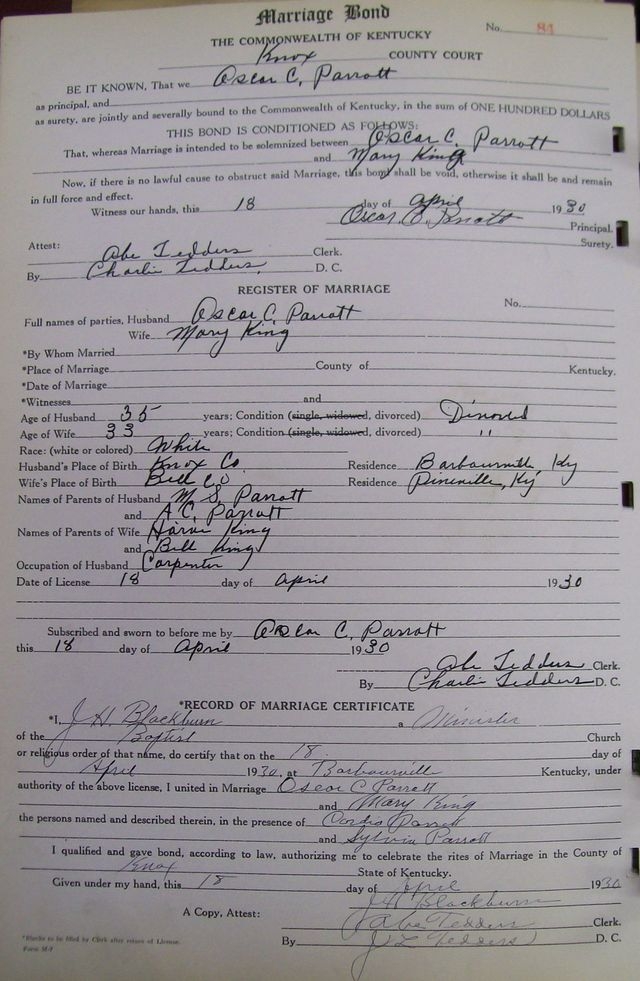 Marriage Bond
No. 84
THE COMMONWEALTH OF KENTUCKY
Knox COUNTY COURT
BE IT KNOWN, That we Oscar C. Parrott
as principal, and
as surety, are jointly and severally bound to the Commonwealth of Kentucky, in the sum of ONE HUNDRED DOLLARS
THIS BOND IS CONDITIONED AS FOLLOWS:
That, whereas Marriage is intended to be solemnized between Oscar C. Parrott
and Mary King
Now, if there is no lawful cause to obstruct said Marriage, this bond shall be void, otherwise it shall be and remain
in full force and effect.
Witness our hands, this 18 day of April 1930
Oscar C. Parrott Principal.
Surety.
Attest: Abe Tedders Clerk.
By Charlie Tedders, D. C.
REGISTER OF MARRIAGE
No.
Full names of parties, Husband Oscar C. Parrott
Wife Mary King
*By Whom Married
*Place of Marriage County of Kentucky.
*Date of Marriage
*Witnesses and
Age of Husband 35 years; Condition (single, widowed, divorced) Divorced
Age of Wife 33 years; Condition (single, widowed, divorced) "
Race: (white or colored) White
Husband's Place of Birth Knox Co. Residence Barbourville, Ky
Wife's Place of Birth Bell Co Residence Pineville, Ky
Names of Parents of Husband M. S. Parrott
and A. C. Parrott
Names of Parents of Wife King
and Bill King
Occupation of Husband Carpenter
Date of License 18 day of April 1930
Subscribed and sworn to before me by Oscar C. Parrott
this 18 day of April 1930
Abe Tedders Clerk.
By Charlie Tedders D. C.
*RECORD OF MARRIAGE CERTIFICATE
*I, J. H. Blackburn a Minister
of the Baptist Church
or religious order of that name, do certify that on the 18 day of
April 1930, at Barbourville Kentucky, under
authority of the above license, I united in Marriage Oscar C Parrott
and Mary King
the persons named and described therein, in the presence of Parrott
and Sylvia Parrott
I qualified and gave bond, according to law, authorizing me to celebrate the rites of Marriage in the County of
Knox State of Kentucky.
Given under my hand, this 18 day of April 1930
J H Blackburn
A Copy, Attest: Abe Tedders Clerk.
By J L Tedders D. C.
*Blanks to be filled by Clerk after return of License.
Form M-7